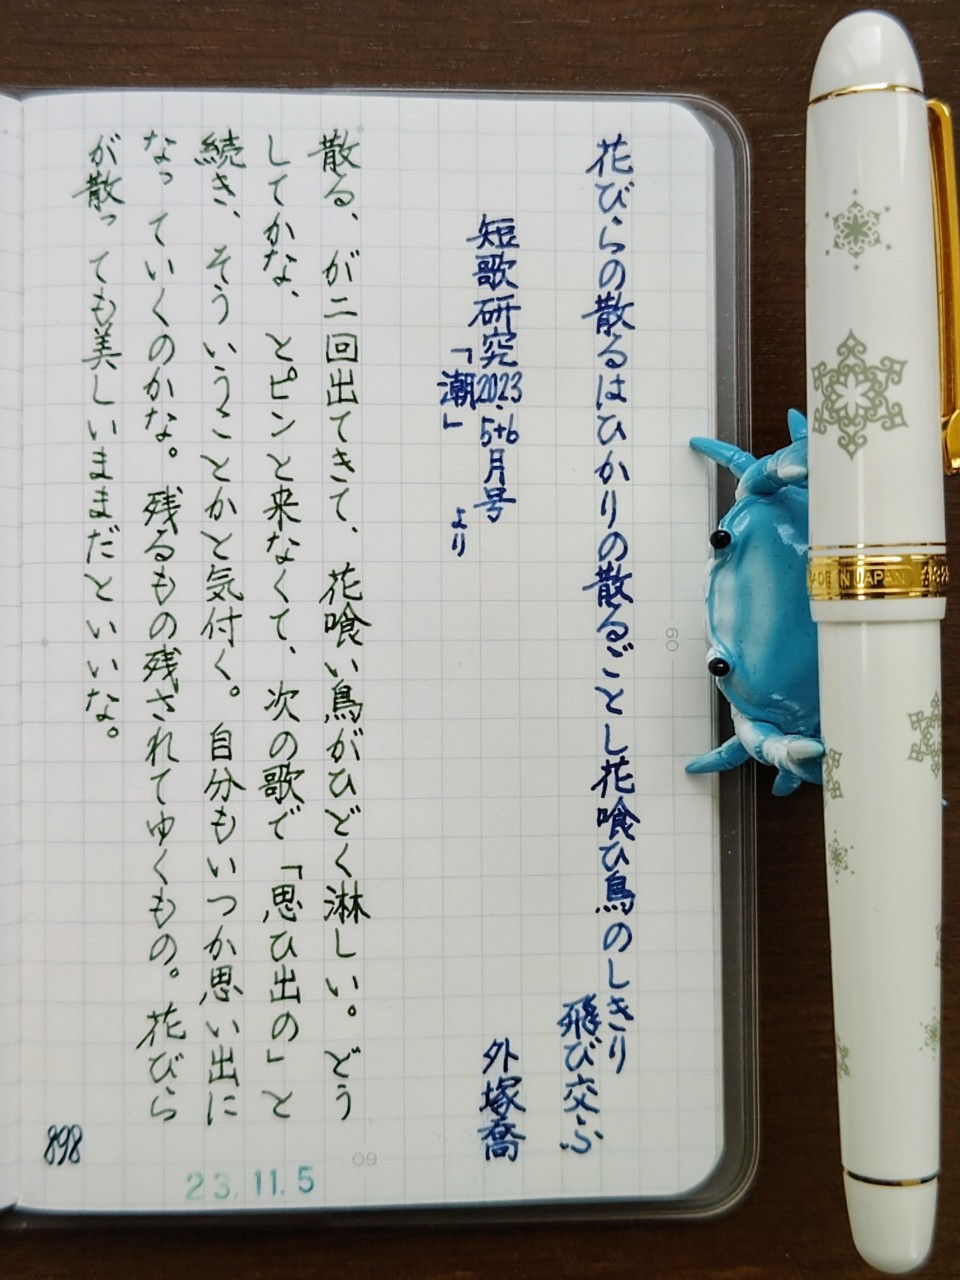 花びらの散るはひかりの散るごとし花喰ひ鳥のしきり
飛び交ふ
短歌研究2023.5+6月号
「潮」より
外塚喬
散る、が二回出てきて、花喰い鳥がひどく淋しい。どう
してかな、とピンと来なくて、次の歌で「思ひ出の」と
続き、そういうことかと気付く。自分もいつか思い出に
なっていくのかな。残るもの残されてゆくもの。花びら
が散っても美しいままだといいな。
898
23.11.5
60
MADE IN JAPAN